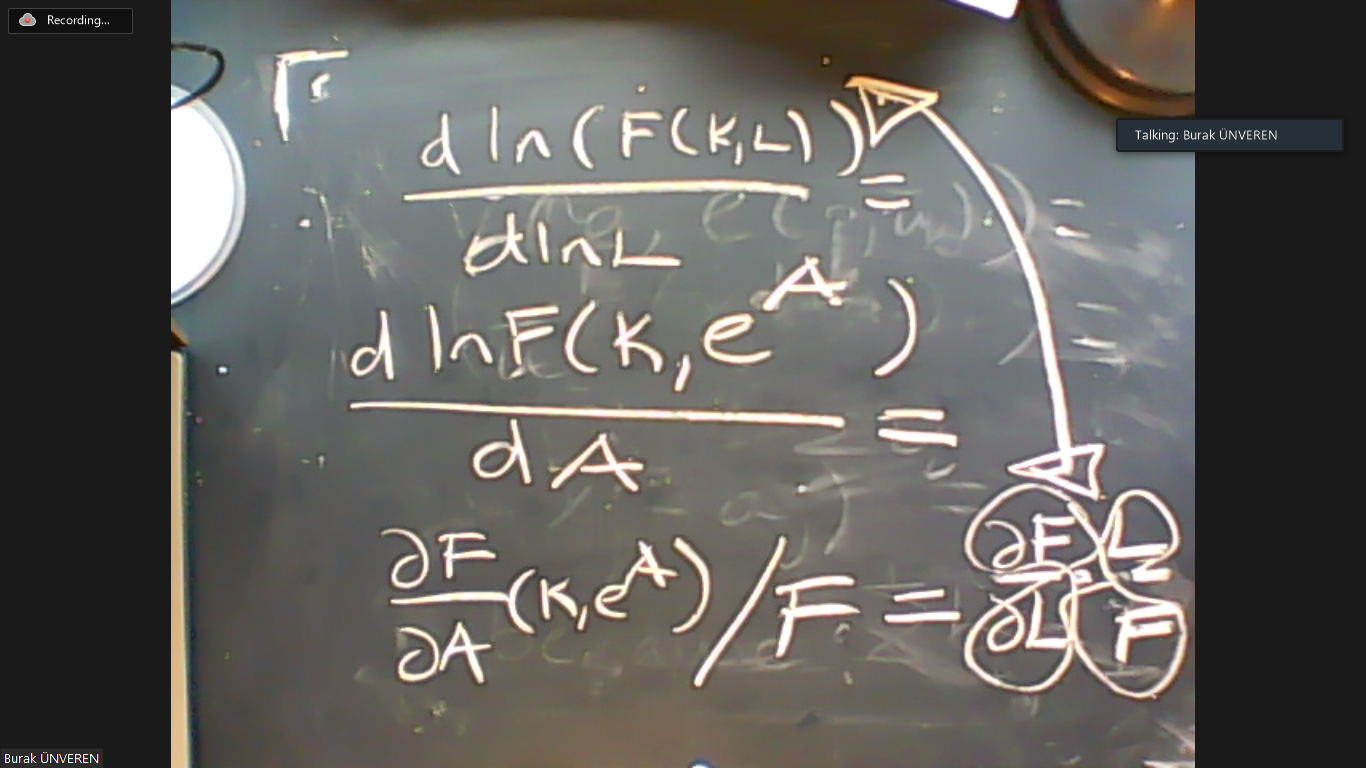 Recording...
Talking: Burak ÜNVEREN
d ln(F(K,L))
=
d ln L
d ln F(K, e^A)
=
d A
∂F/∂A (K, e^A) / F = ∂F/∂L L/F
Burak ÜNVEREN